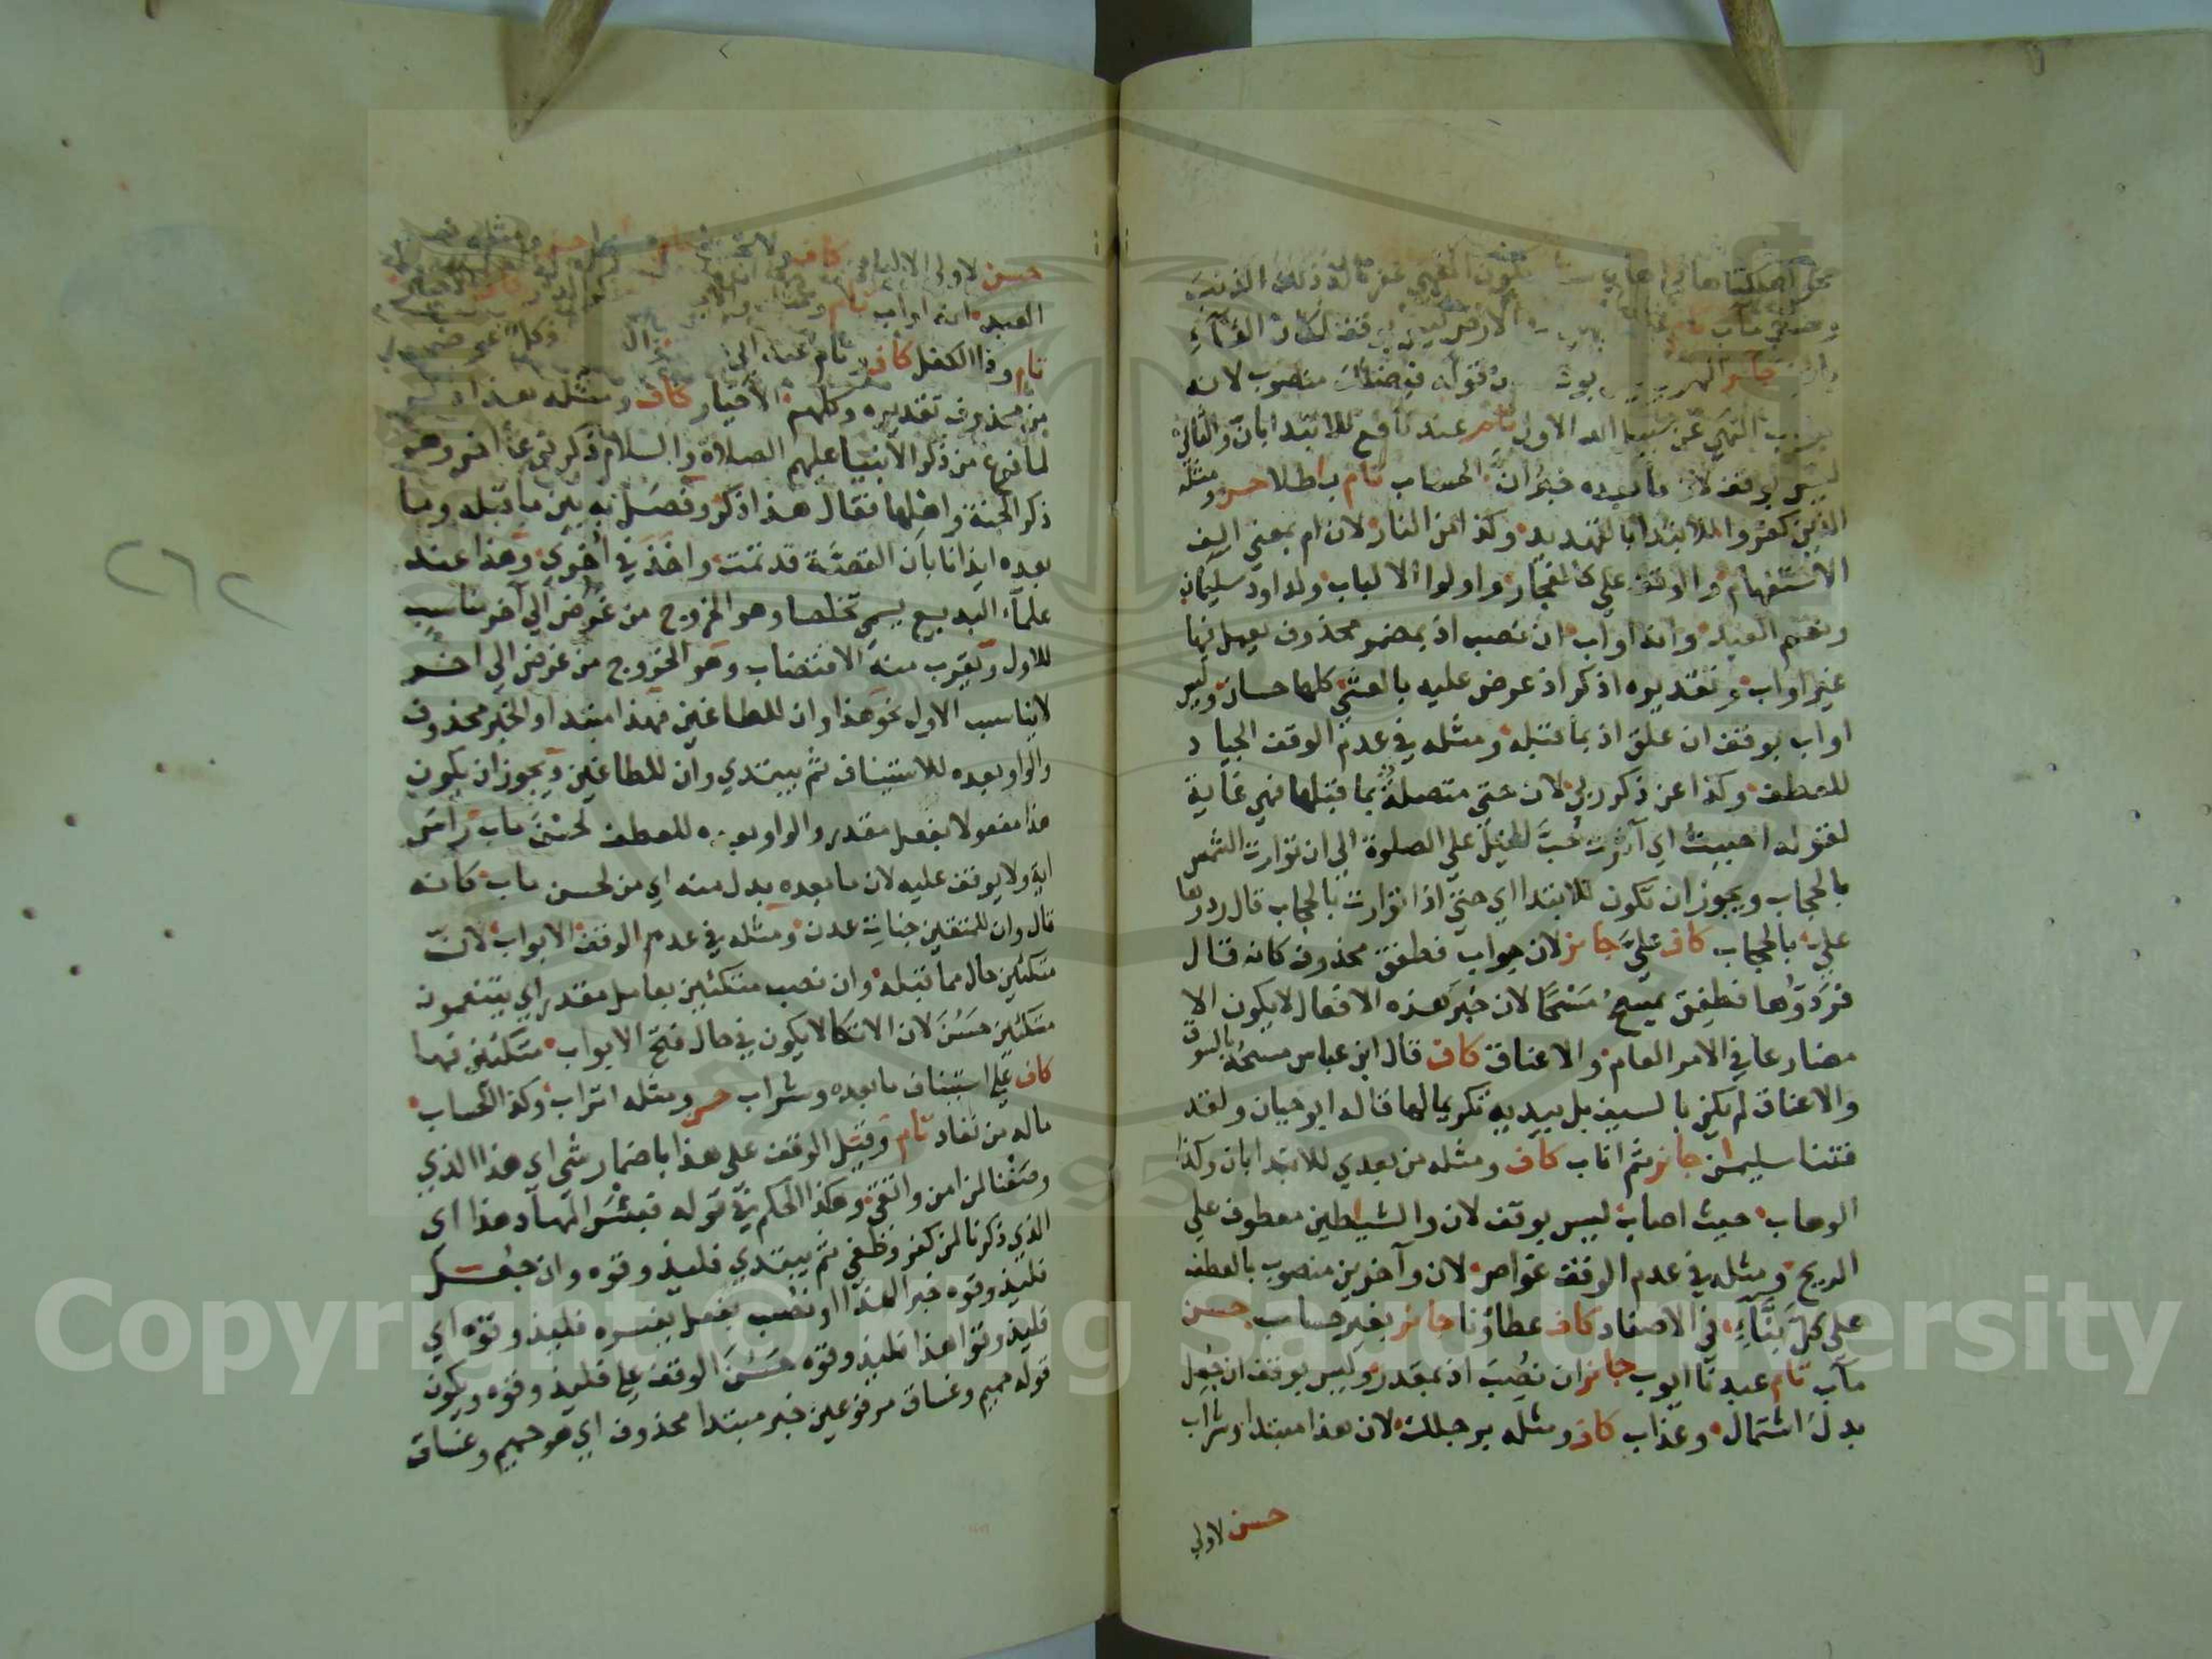 نحو اهلكناها فجاءها يكون المعنى غفرنا له ذلك الذنب
وحسن مآب تام الارض ليس بوقف لمكان الفاء
جائز قوله فيضلك منصوب لانه
جواب النهي عن سبيل الله الاول تام عند نافع للابتدا بان والثاني
ليس بوقف لان ما بعده خبر ان الحساب تام باطلا حسن ومثله
الذين كفروا للابتدا بالتهديد وكذا من النار لان ام بمعنى الف
الاستفهام والوقف على كالفجار واولوا الالباب ولداود سليمان
ونعم العبد وانه اواب ان نصب اذ بمضمر محذوف يعمل فيها
غير اواب وتقديره اذكر اذ عرض عليه بالعشي كلها حسان وليس
اواب بوقف ان علق اذ بما قبله ومثله في عدم الوقف الجياد
للعطف وكذا عن ذكر ربي لان حتى متصلة بما قبلها فهي غاية
لقوله احببت اي آثرت حب الخيل على الصلوة الى ان توارت الشمس
بالحجاب ويجوز ان تكون للابتدا اي حتى اذا توارت بالحجاب قال ردوها
علي بالحجاب كاف علي جائز لان جواب فطفق محذوف كانه قال
فردوها فطفق يمسح مسحا لان خبر هذه الافعال لا يكون الا
مضارعا في الامر العام والاعناق كاف قال ابن عباس مسحه بالسوق
والاعناق لم يكن بالسيف بل بيديه تكريما لها قاله ابو حيان ولقد
فتنا سليمن جائز ثم اناب كاف ومثله من بعدي للابتدا بان وكذا
الوهاب حيث اصاب ليس بوقف لان والشياطين معطوف على
الريح ومثله في عدم الوقف غواص لان وآخرين منصوب بالعطف
على كل بناء في الاصفاد كاف عطاؤنا جائز بغير حساب حسن
مآب تام عبدنا ايوب جائز ان نصب اذ بمقدر وليس بوقف ان جعل
بدل اشتمال وعذاب كاف ومثله برجلك لان هذا مبتدا وشراب
حسن لاولي
حسن لاولي الالباب كاف ولا تحنث
العبد انه اواب تام
تام وذا الكفل كاف وكلا
من محذوف تقديره وكلهم الاخيار كاف ومثله هذا ذكر
لما فرغ من ذكر الانبيا عليهم الصلاة والسلام ذكر نوعا آخر وهو
ذكر الجنة واهلها فقال هذا ذكر وفصل به بين ما قبله وما
بعده ايذانا بان القصة قد تمت واخذ في اخرى وهذا عند
علماء البديع يسمى تخلصا وهو الخروج من غرض الى آخر مناسب
للاول ويقرب منه الاقتضاب وهو الخروج من غرض الى اخر
لا يناسب الاول نحو هذا وان للطاغين فهذا مبتدا والخبر محذوف
والواو بعده للاستيناف ثم يبتدي وان للطاغين ويجوز ان يكون
هذا مفعولا بفعل مقدر والواو بعده للعطف لحسن مآب راس
اية ولا يوقف عليه لان ما بعده بدل منه اي من لحسن مآب كانه
قال وان للمتقين جنات عدن ومثله في عدم الوقف الابواب لان
متكئين حال مما قبله وان نصب متكئين بعامل مقدر اي يتنعمون
متكئين حسن لان الاتكا لا يكون في حال فتح الابواب متكئين فيها
كاف على استيناف ما بعده وشراب حسن ومثله اتراب وكذا الحساب
ماله من نفاد تام وقيل الوقف على هذا باضمار شى اي هذا الذي
وصفنا لمن امن واتقى وهكذا الحكم في قوله فبئس المهاد هذا اى
الذي ذكرنا لمن كفر وطغى ثم يبتدي فليذوقوه وان جعل
فليذوقوه خبر الهذا او نصب بفعل يفسره فليذوقوه اي
فليذوقوا هذا فليذوقوه حسن الوقف على فليذوقوه ويكون
قوله حميم وغساق مرفوعين خبر مبتدا محذوف اي هو حميم وغساق
٢٦٢
Copyright © King Saud University
1957